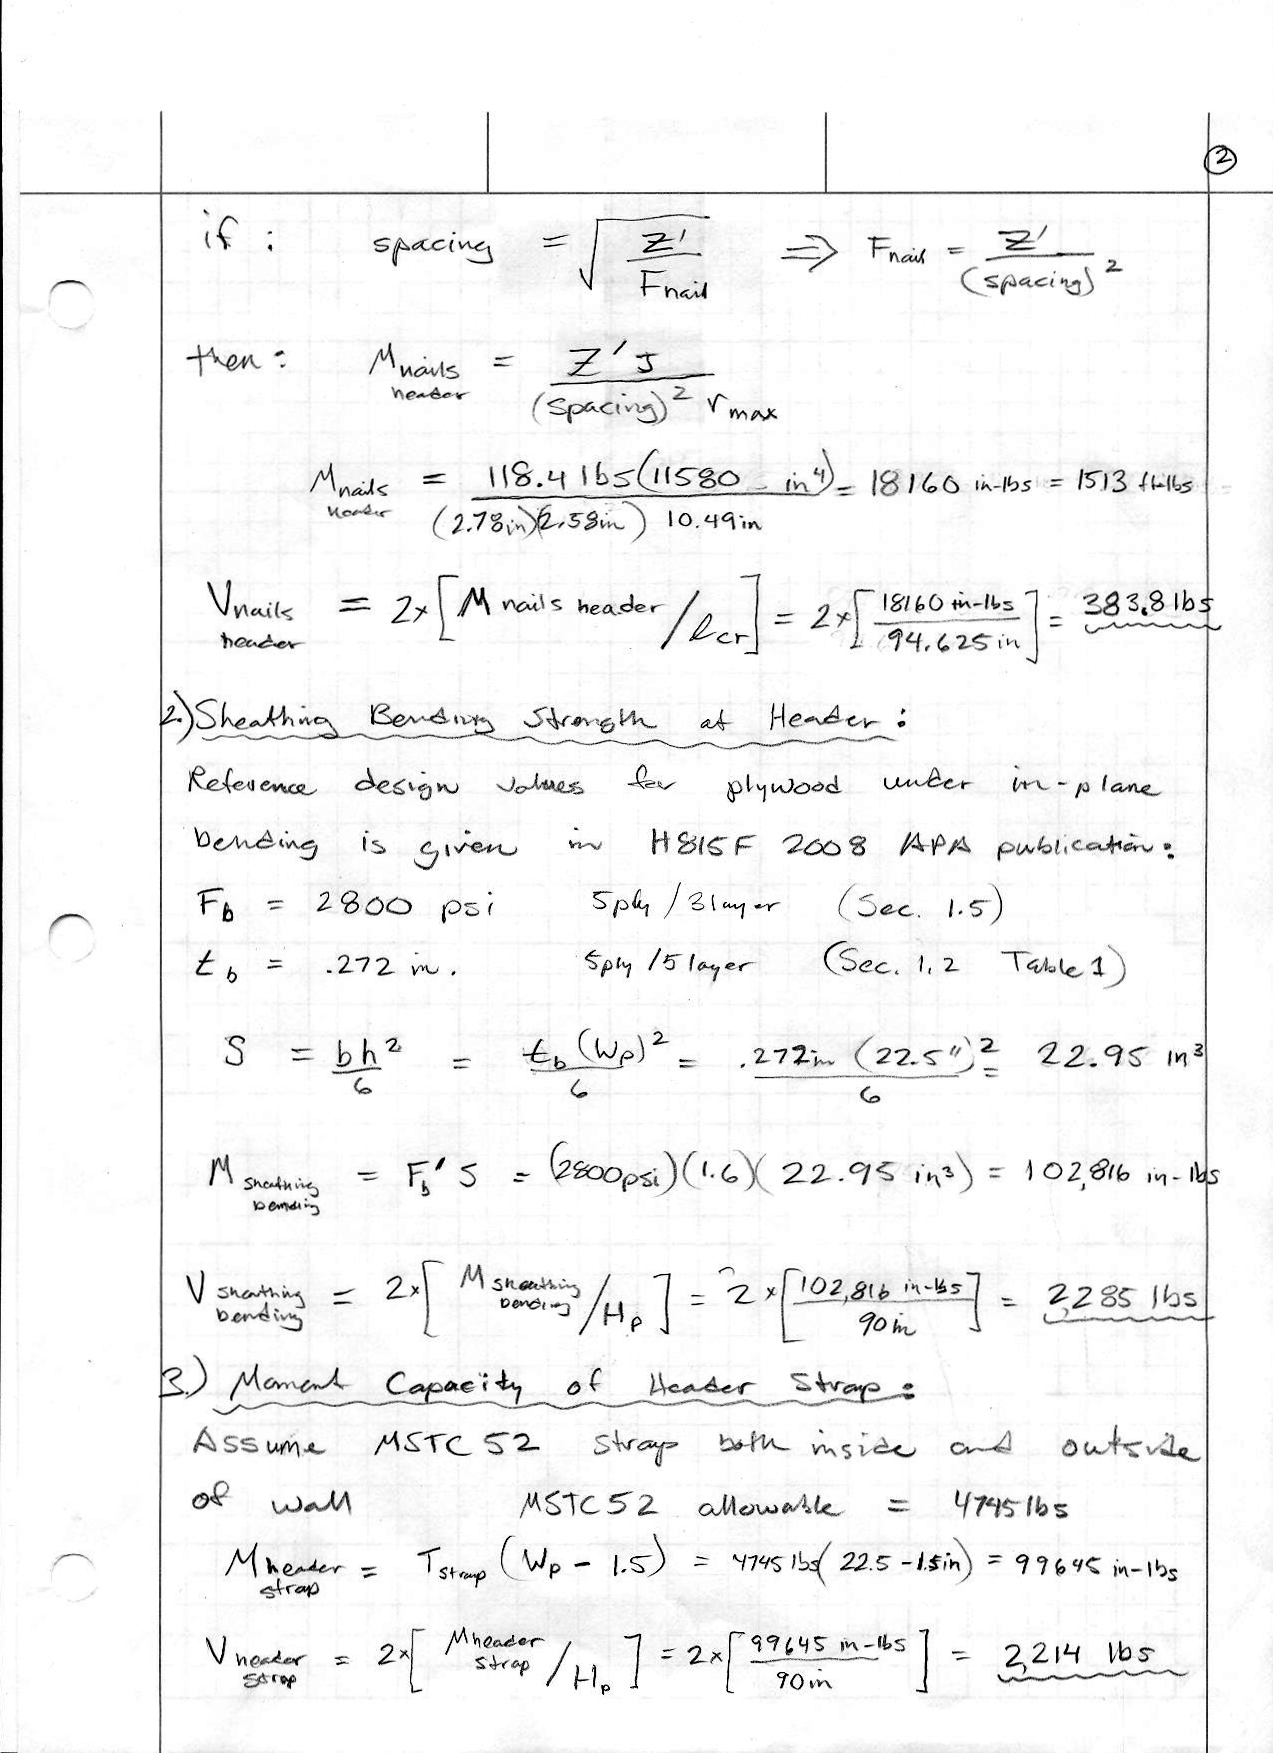 2
if : spacing = √(Z' / Fnail) ⇒ Fnail = Z' / (spacing)²
then : Mnails header = Z' J / (spacing)² rmax
Mnails header = 118.4 lbs (11580 in⁴) / (2.78in)(2.58in) 10.49in = 18160 in-lbs = 1513 ft-lbs
Vnails header = 2x[Mnails header / lcr] = 2x[18160 in-lbs / 94.625 in] = 383.8 lbs
2.) Sheathing Bending Strength at Header :
Reference design values for plywood under in-plane
bending is given in H815F 2008 APA publication :
Fb = 2800 psi 5ply / 3layer (Sec. 1.5)
tb = .272 in. 5ply / 5 layer (Sec. 1.2 Table 1)
S = bh² / 6 = tb (Wp)² / 6 = .272in (22.5")² / 6 = 22.95 in³
M sheathing bending = Fb' S = (2800psi)(1.6)(22.95 in³) = 102,816 in-lbs
V sheathing bending = 2x[M sheathing bending / Hp] = 2x[102,816 in-lbs / 90in] = 2,285 lbs
3.) Moment Capacity of Header Strap :
Assume MSTC 52 strap both inside and outside
of wall MSTC52 allowable = 4745 lbs
Mheader strap = Tstrap (Wp - 1.5) = 4745 lbs (22.5 - 1.5in) = 99645 in-lbs
Vheader strap = 2x[Mheader strap / Hp] = 2x[99645 in-lbs / 90in] = 2,214 lbs